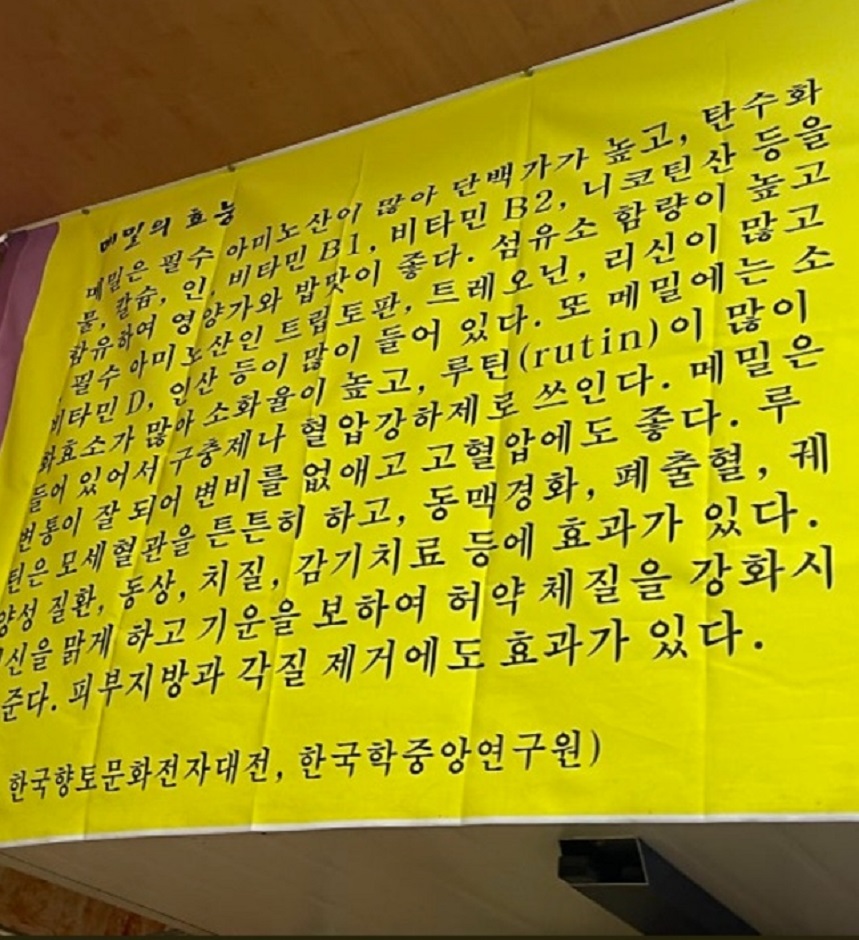 메밀의 효능
메밀은 필수 아미노산이 많아 단백가가 높고, 탄수화
물, 칼슘, 인, 비타민 B1, 비타민 B2, 니코틴산 등을
함유하여 영양가와 밥맛이 좋다. 섬유소 함량이 높고
, 필수 아미노산인 트립토판, 트레오닌, 리신이 많고
비타민 D, 인산 등이 많이 들어 있다. 또 메밀에는 소
화효소가 많아 소화율이 높고, 루틴(rutin)이 많이
들어 있어서 구충제나 혈압강하제로 쓰인다. 메밀은
변통이 잘 되어 변비를 없애고 고혈압에도 좋다. 루
틴은 모세혈관을 튼튼히 하고, 동맥경화, 폐출혈, 궤
양성 질환, 동상, 치질, 감기치료 등에 효과가 있다.
신을 맑게 하고 기운을 보하여 허약 체질을 강화시
준다. 피부지방과 각질 제거에도 효과가 있다.
한국향토문화전자대전, 한국학중앙연구원)